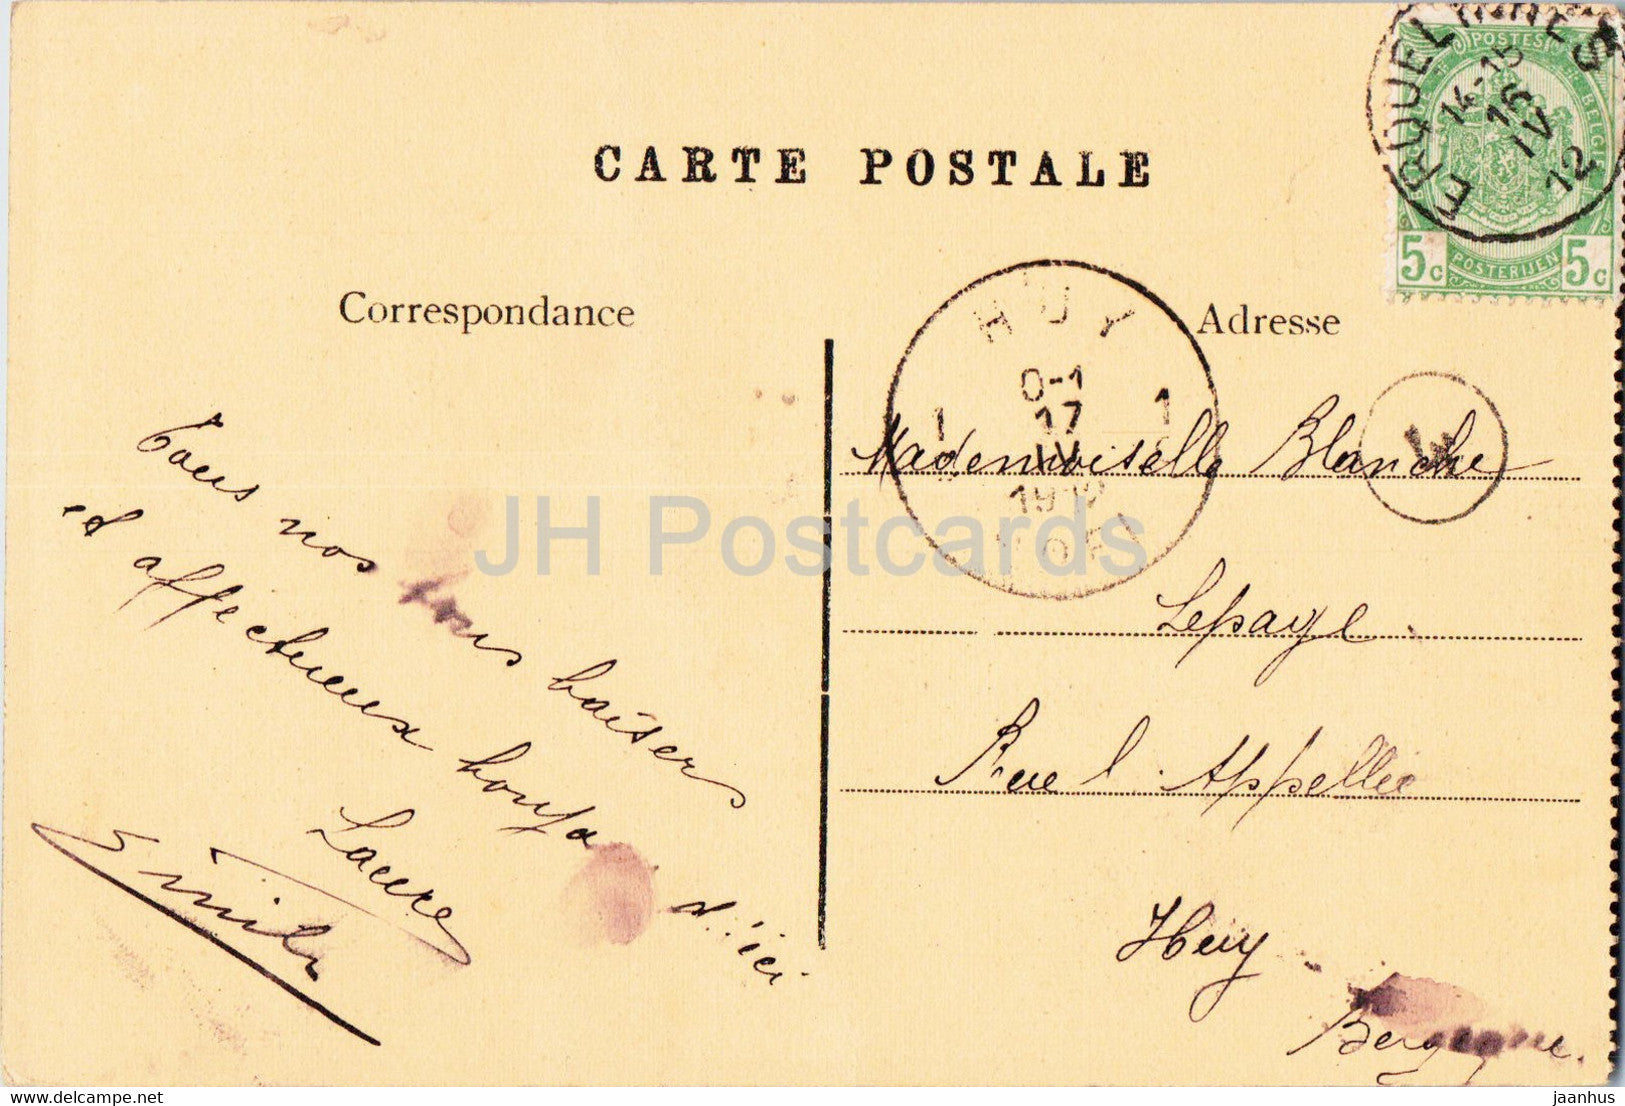 CARTE POSTALE
Correspondance
Adresse
ERQUELINNES
14-15
16
IV
12
POSTES
BELGIQUE
5c POSTERIJEN 5c
HUY
0-1
1 17 1
IV
1912
Tous nos bons baisers
et affectueux bonjour d'ici
Laure
Emile
Mademoiselle Blanche
Lepage
Rue l'Appellée
Huy
JH Postcards
jaanhus
www.delcampe.net